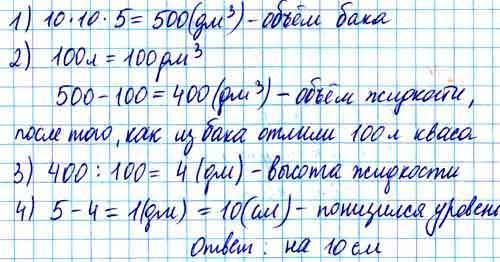 1) 10·10·5=500(дм³)-объём бака
2) 100л=100дм³
500-100=400(дм³)-объём жидкости,
после того, как из бака отлили 100л кваса
3) 400:100= 4(дм)-высота жидкости
4) 5-4=1(дм)=10(см)-понизился уровень
Ответ: на 10см